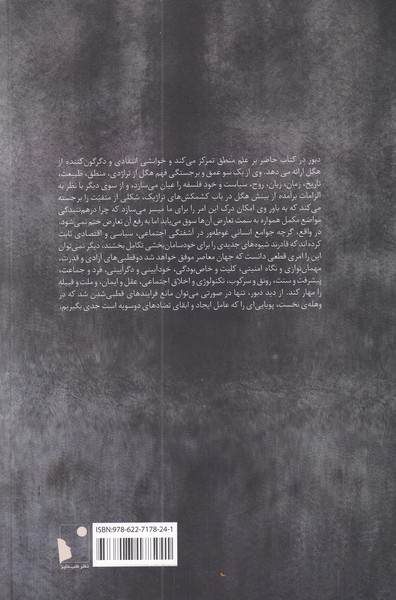 دبور در کتاب حاضر بر علم منطق تمرکز می‌کند و خوانشی انتقادی و دگرگون‌کننده از
هگل ارائه می دهد. وی از یک سو عمق و برجستگی فهم هگل از تراژدی، منطق، طبیعت،
تاریخ، زمان، زبان، روح، سیاست و خودِ فلسفه را عیان می‌سازد، و از سوی دیگر با نظر به
الزامات برآمده از بینش هگل در باب کشمکش‌های تراژیک، شکلی از منفیّت را برجسته
می‌کند که به باور وی امکان درک این امر را برای ما میسر می‌سازد که چرا درهم‌تنیدگی
مواضع مکمل همواره به سمت تعارض آن‌ها سوق می‌یابد اما به رفع آن تعارض ختم نمی‌شود.
در واقع، گرچه جوامع انسانی غوطه‌ور در آشفتگی اجتماعی، سیاسی و اقتصادی ثابت
کرده‌اند که قادرند شیوه‌های جدیدی را برای خودسامان‌بخشی تکامل بخشند، دیگر نمی‌توان
این را امری قطعی دانست که جهان معاصر موفق خواهد شد دوقطبی‌های آزادی و قدرت،
مهمان‌نوازی و نگاه امنیتی، کلیت و خاص‌بودگی، خودآیینی و دگرآیینی، فرد و جماعت،
پیشرفت و سنت، رونق و سرکوب، تکنولوژی و اخلاق اجتماعی، عقل و ایمان، و ملت و قبیله
را مهار کند. از دید دبور، تنها در صورتی می‌توان مانع فرایندهای قطبی‌شدن شد که در
وهله‌ی نخست، پویایی‌ای را که عامل ایجاد و ابقای تضادهای دوسویه است جدی بگیریم.
ISBN:978-622-7178-24-1